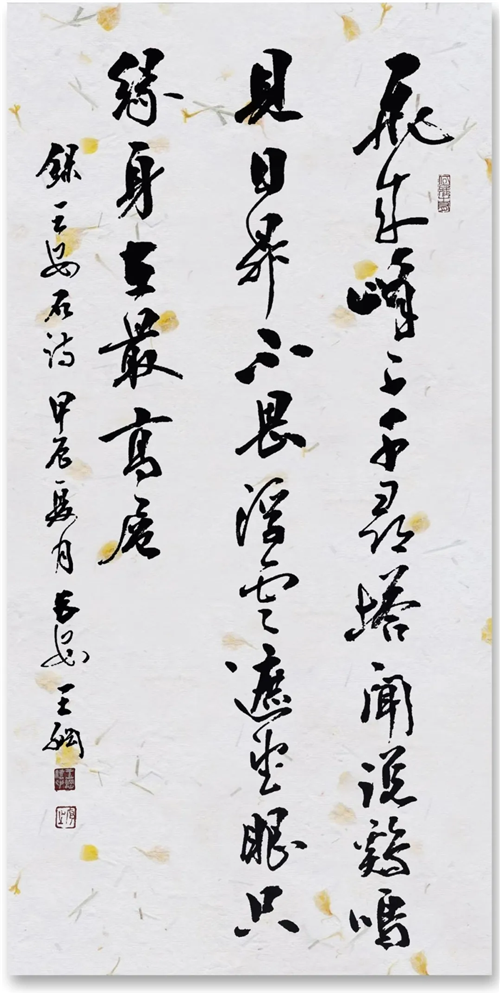 飛来峰上千尋塔聞説鷄鳴
見日昇不畏浮雲遮望眼只
緣身在最高層
録王安石詩 甲辰夏月 長安 王